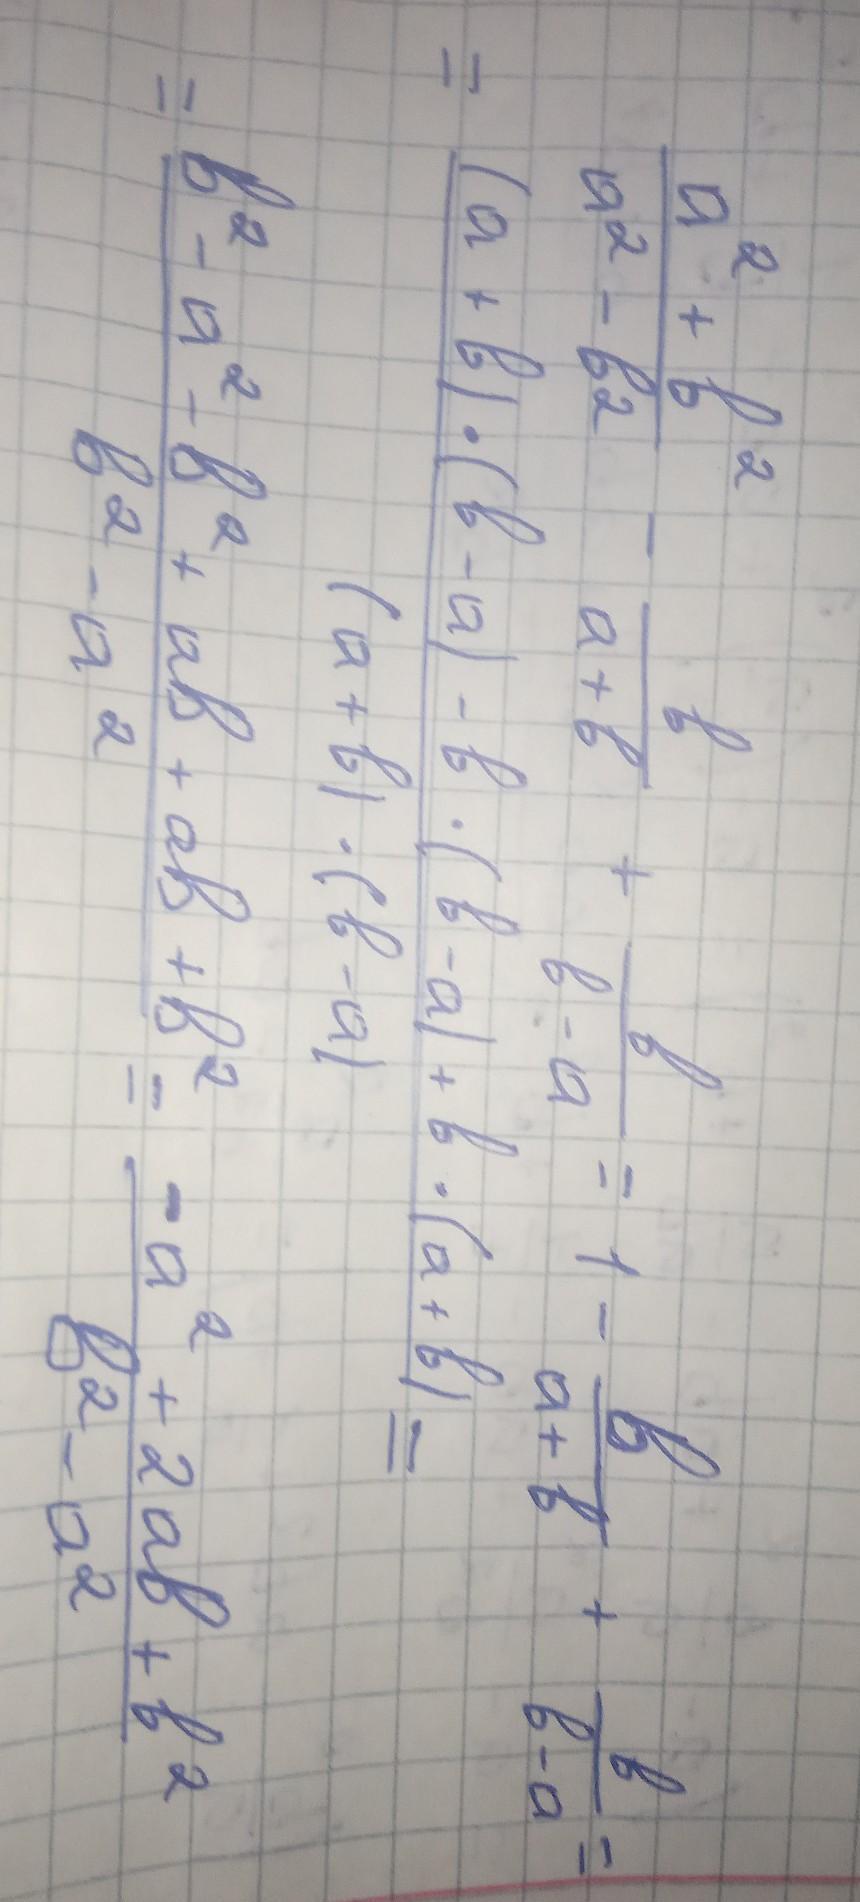 \frac{a^2 + b^2}{a^2 - b^2} - \frac{b}{a+b} + \frac{b}{b-a} = 1 - \frac{b}{a+b} + \frac{b}{b-a} =
= \frac{(a+b) \cdot (b-a) - b \cdot (b-a) + b \cdot (a+b)}{(a+b) \cdot (b-a)} =
= \frac{b^2 - a^2 - b^2 + ab + ab + b^2}{b^2 - a^2} = \frac{-a^2 + 2ab + b^2}{b^2 - a^2}